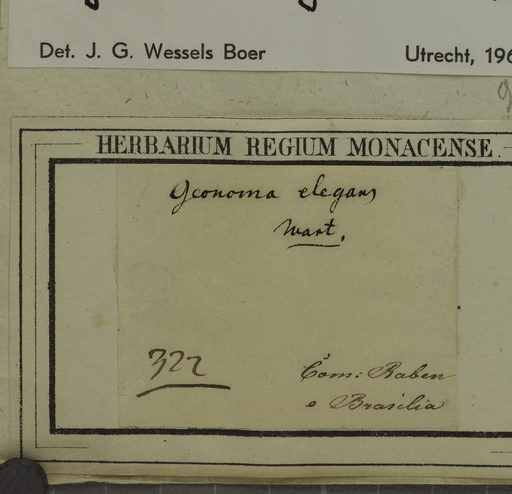 Det. J. G. Wessels Boer Utrecht, 196
HERBARIUM REGIUM MONACENSE.
Geonoma elegans
Mart.
322
Com: Raben
e Brasilia